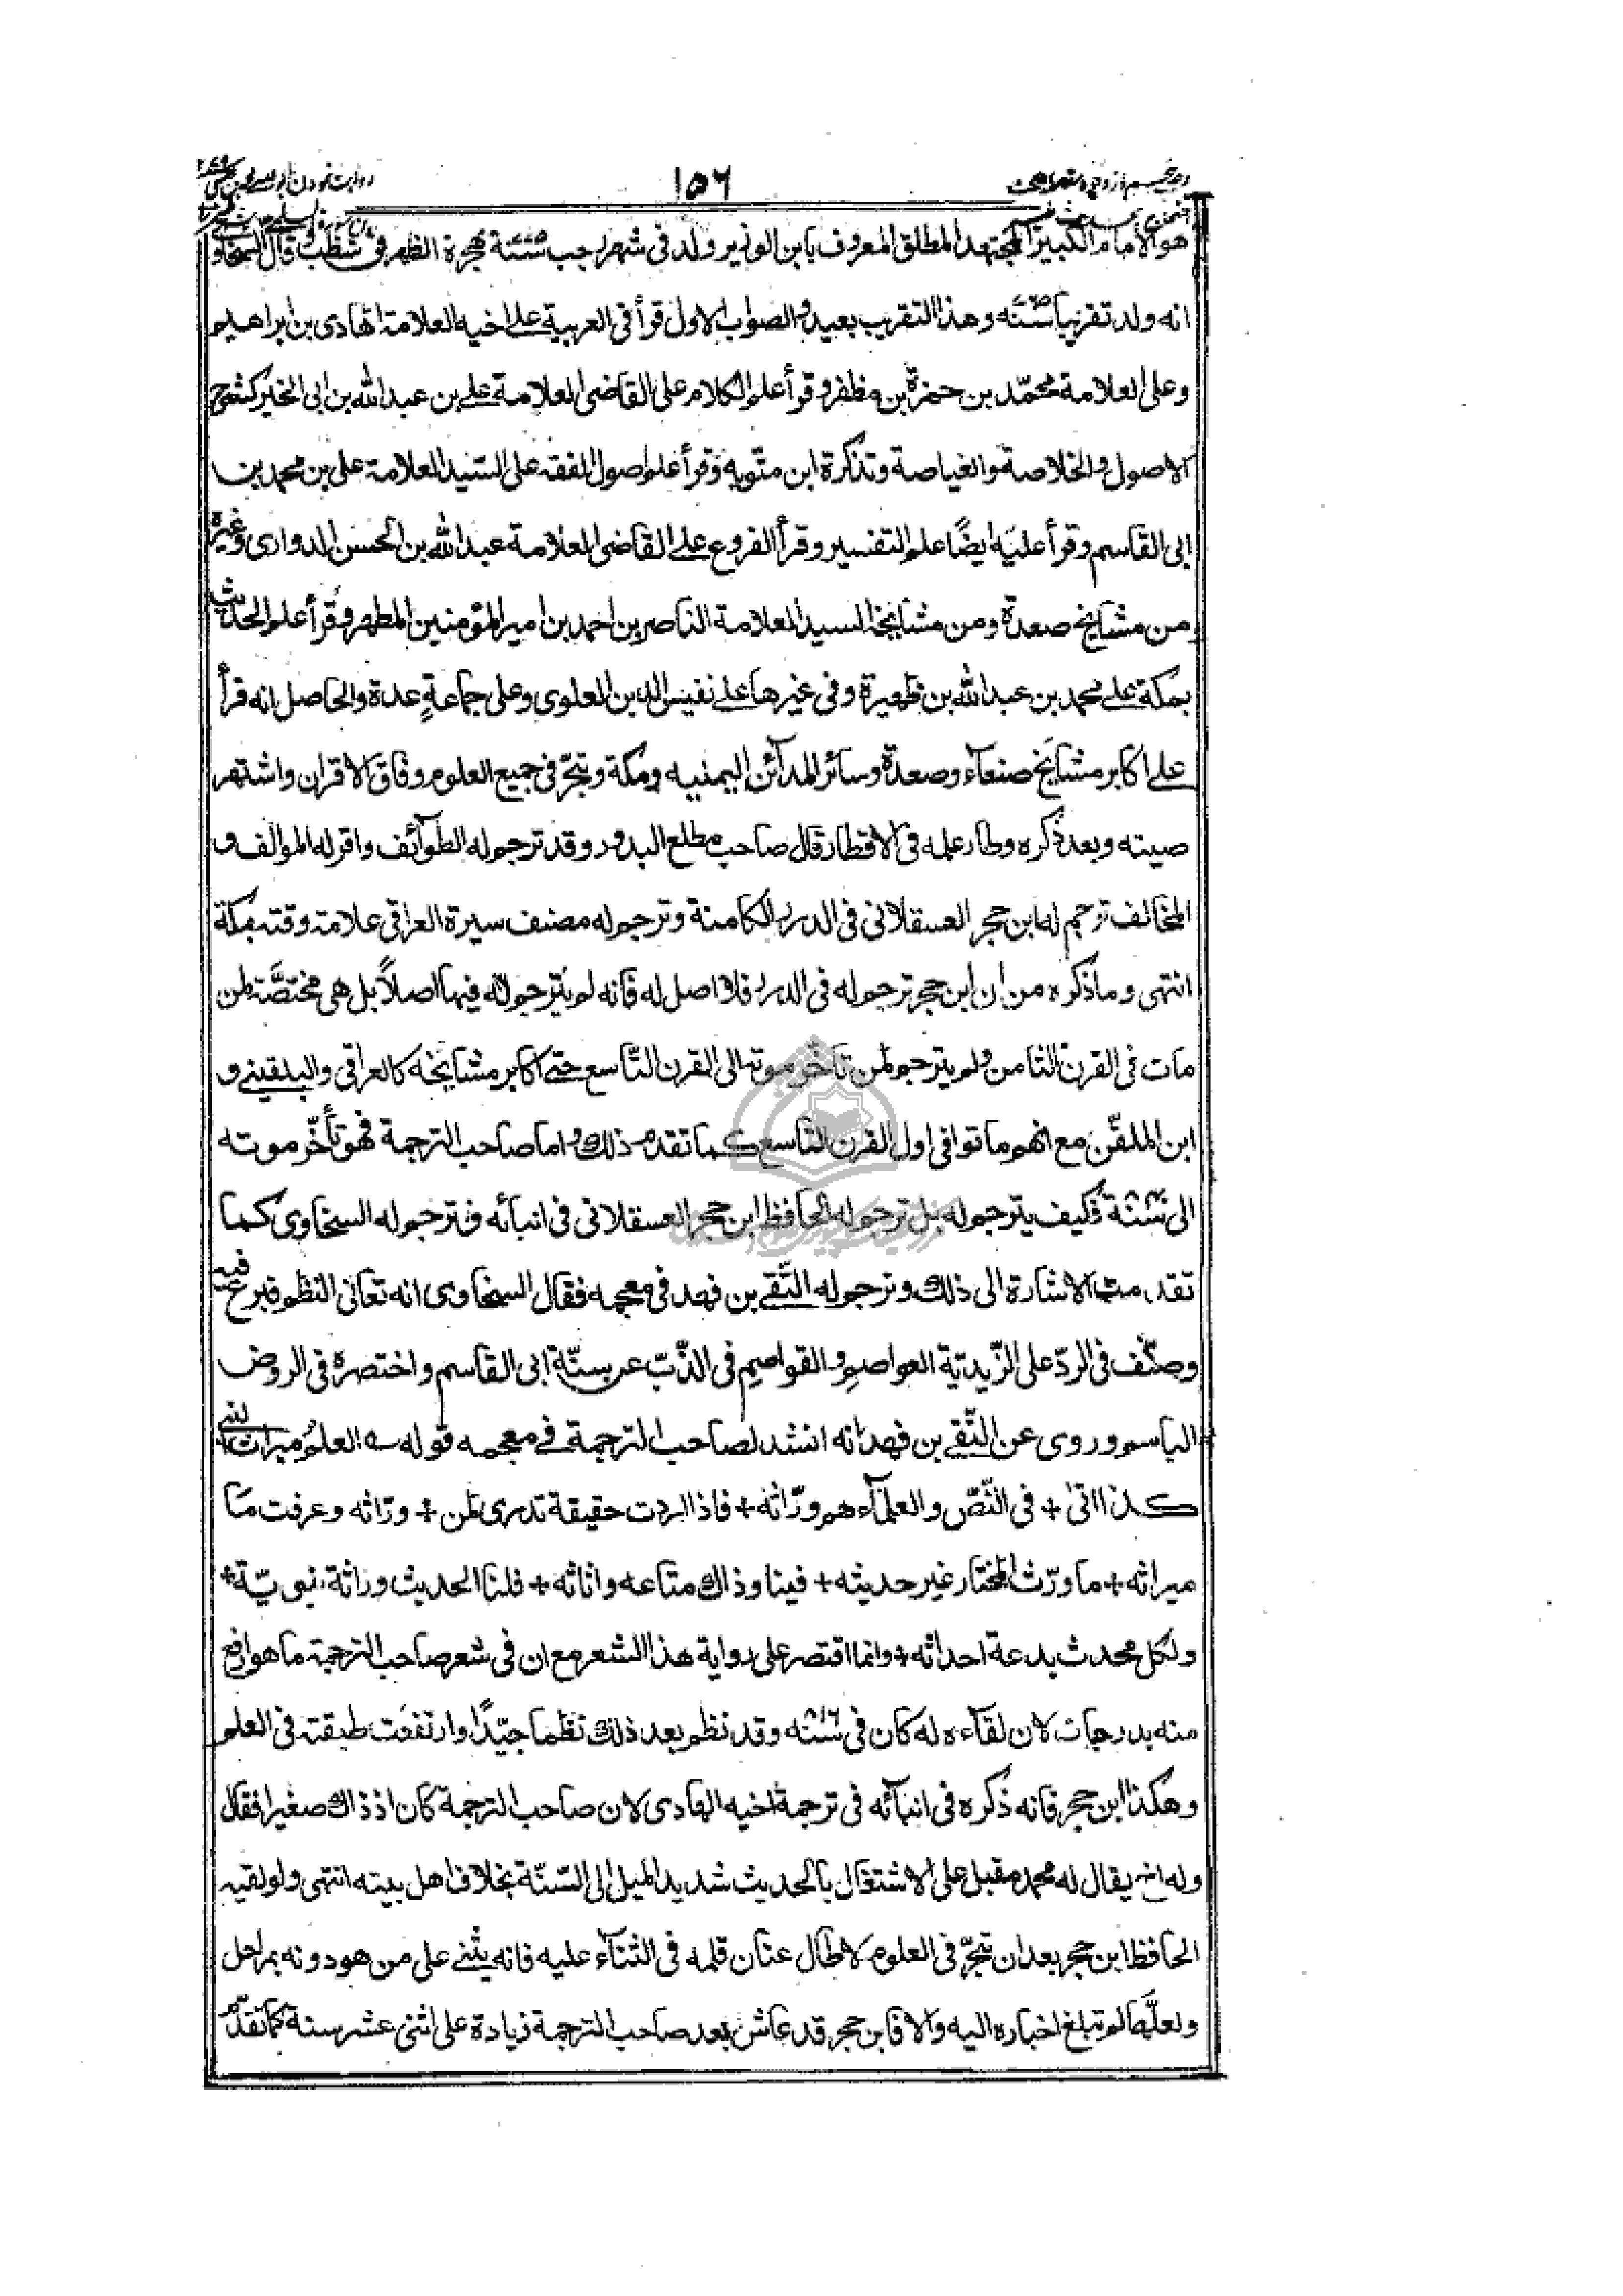 ١٥٦
هو الامام الكبير المجتهد المطلق المعروف بابن الوزير ولد فى شهر رجب سنة بهجرة الظهر فى شظب وقال السخاو
انه ولد تقريبا سنة وهذا التقريب بعيد والصواب الاول قرأ فى العربية على اخيه العلامة الهادى بن ابراهيم
وعلى العلامة محمّد بن حمزة بن مظفر وقرأ علم الكلام على القاضى العلامة على بن عبد الله بن ابى الخير كشرح
الاصول والخلاصة والغياصة وتذكرة ابن متّويه وقرأ علم اصول الفقه على السّيد العلامة على بن محمد بن
ابى القاسم وقرأ عليه ايضًا علم التفسير وقرأ الفروع على القاضى العلامة عبد الله بن الحسن الدوارى وغيرة
من مشايخ صعدة ومن مشايخه السيد العلامة الناصر بن احمد بن امير المؤمنين المطهر وقرأ علم الحديث
بمكة على محمد بن عبد الله بن ظهيرة وفى غيرها على نفيس الدين العلوى وعلى جماعةٍ عدة والحاصل انه قرأ
على اكابر مشايخ صنعاء وصعدة وسائر المدآئن اليمنيه ومكة وتبحّر فى جميع العلوم وفاق الاقران واشتهر
صيته وبعد ذكره وطار علمه فى الاقطار قال صاحب مطلع البدور وقد ترجم له الطوآئف واقر له الموالف و
المخالف ترجم له ابن حجر العسقلانى فى الدرر الكامنة وترجم له مصنف سيرة العراقى علامة وقته بمكة
انتهى وما ذكره من ان ابن حجر ترجم له فى الدرر فلا اصل له فانه لم يترجم له فيها اصلاً بل هى مختصّة لمن
مات فى القرن الثامن ولم يترجم لمن تاخّر موته الى القرن التّاسع حتى اكابر مشايخه كالعراقى والبلقينى و
ابن الملقّن مع انهم ماتوا فى اول القرن التاسع كما تقدم ذلك واما صاحب الترجمة فهو تأخّر موته
الى سنة فكيف يترجم له بل ترجم له الحافظ ابن حجر العسقلانى فى انبائه وترجم له السخاوى كما
تقدمت الاشارة الى ذلك وترجم له التّقى بن فهد فى معجمه فقال السخاوى انه تعانى النظم فبرع فيه
وصنّف فى الردّ على الزّيديّة العواصم والقواصم فى الذّبّ عن سنّة ابى القاسم واختصره فى الروض
الباسم وروى عن التّقى بن فهد انه انشد لصاحب الترجمة فى معجمه قوله العلمُ ميراث النبى
كذا اتى + فى النّصّ والعلمآء هم ورّاثه + فاذا اردت حقيقة تدرى لمن + ورّاثه وعرفت مَا
ميراثه + ما ورّث المختار غير حديثه + فينا وذاك متاعه واثاثه + فلنا الحديث وراثة نبويّة +
ولكل محدث بدعة احداثه + وانما اقتصر على رواية هذا الشعر مع ان فى شعر صاحب الترجمة ما هو ارفع
منه بدرجات لان لقآءه له كان فى سنة وقد نظم بعد ذلك نظما جيّدًا وارتفعت طبقته فى العلم
وهكذا ابن حجر فانه ذكره فى انبآئه فى ترجمة اخيه الهادى لان صاحب الترجمة كان اذ ذاك صغيرا فقال
وله اخ يقال له محمد مقبل على الاشتغال بالحديث شديد الميل الى السّنّة بخلاف اهل بيته انتهى ولو لقيه
الحافظ ابن حجر بعد ان تبحّر فى العلوم لاطال عنان قلمه فى الثنآء عليه فانه يثنى على من هو دونه بمراحل
ولعلّها لم تبلغ اخباره اليه والا فابن حجر قد عاش بعد صاحب الترجمة زيادة على اثنى عشر سنة كما تقدّم